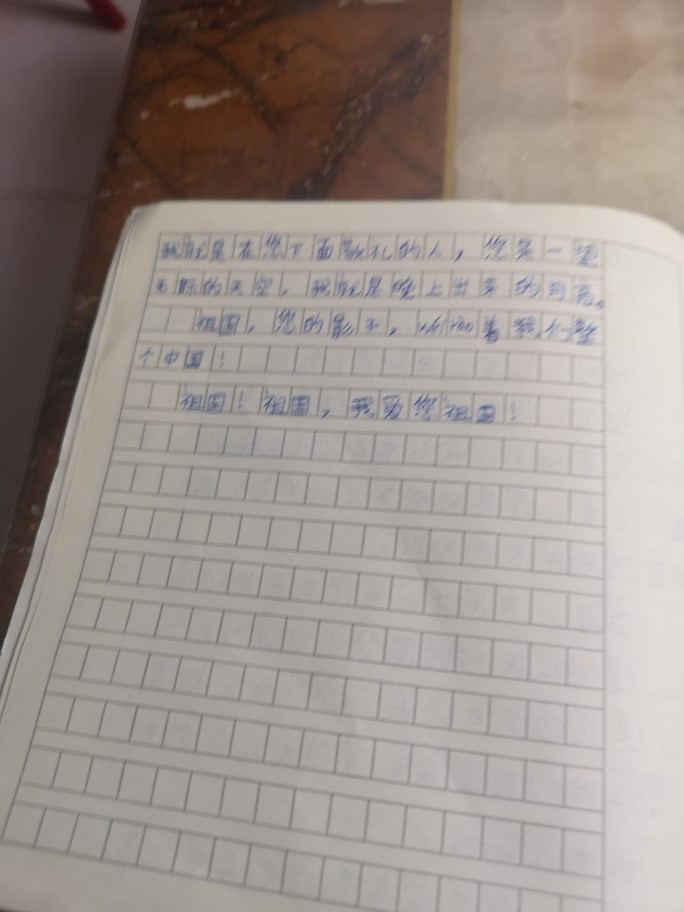 我就是在您下面敬礼的人，您是一望
无际的天空，我就是晚上出来的月亮。
祖国，您的影子，响着我们整
个中国！
祖国！祖国，我爱您祖国！